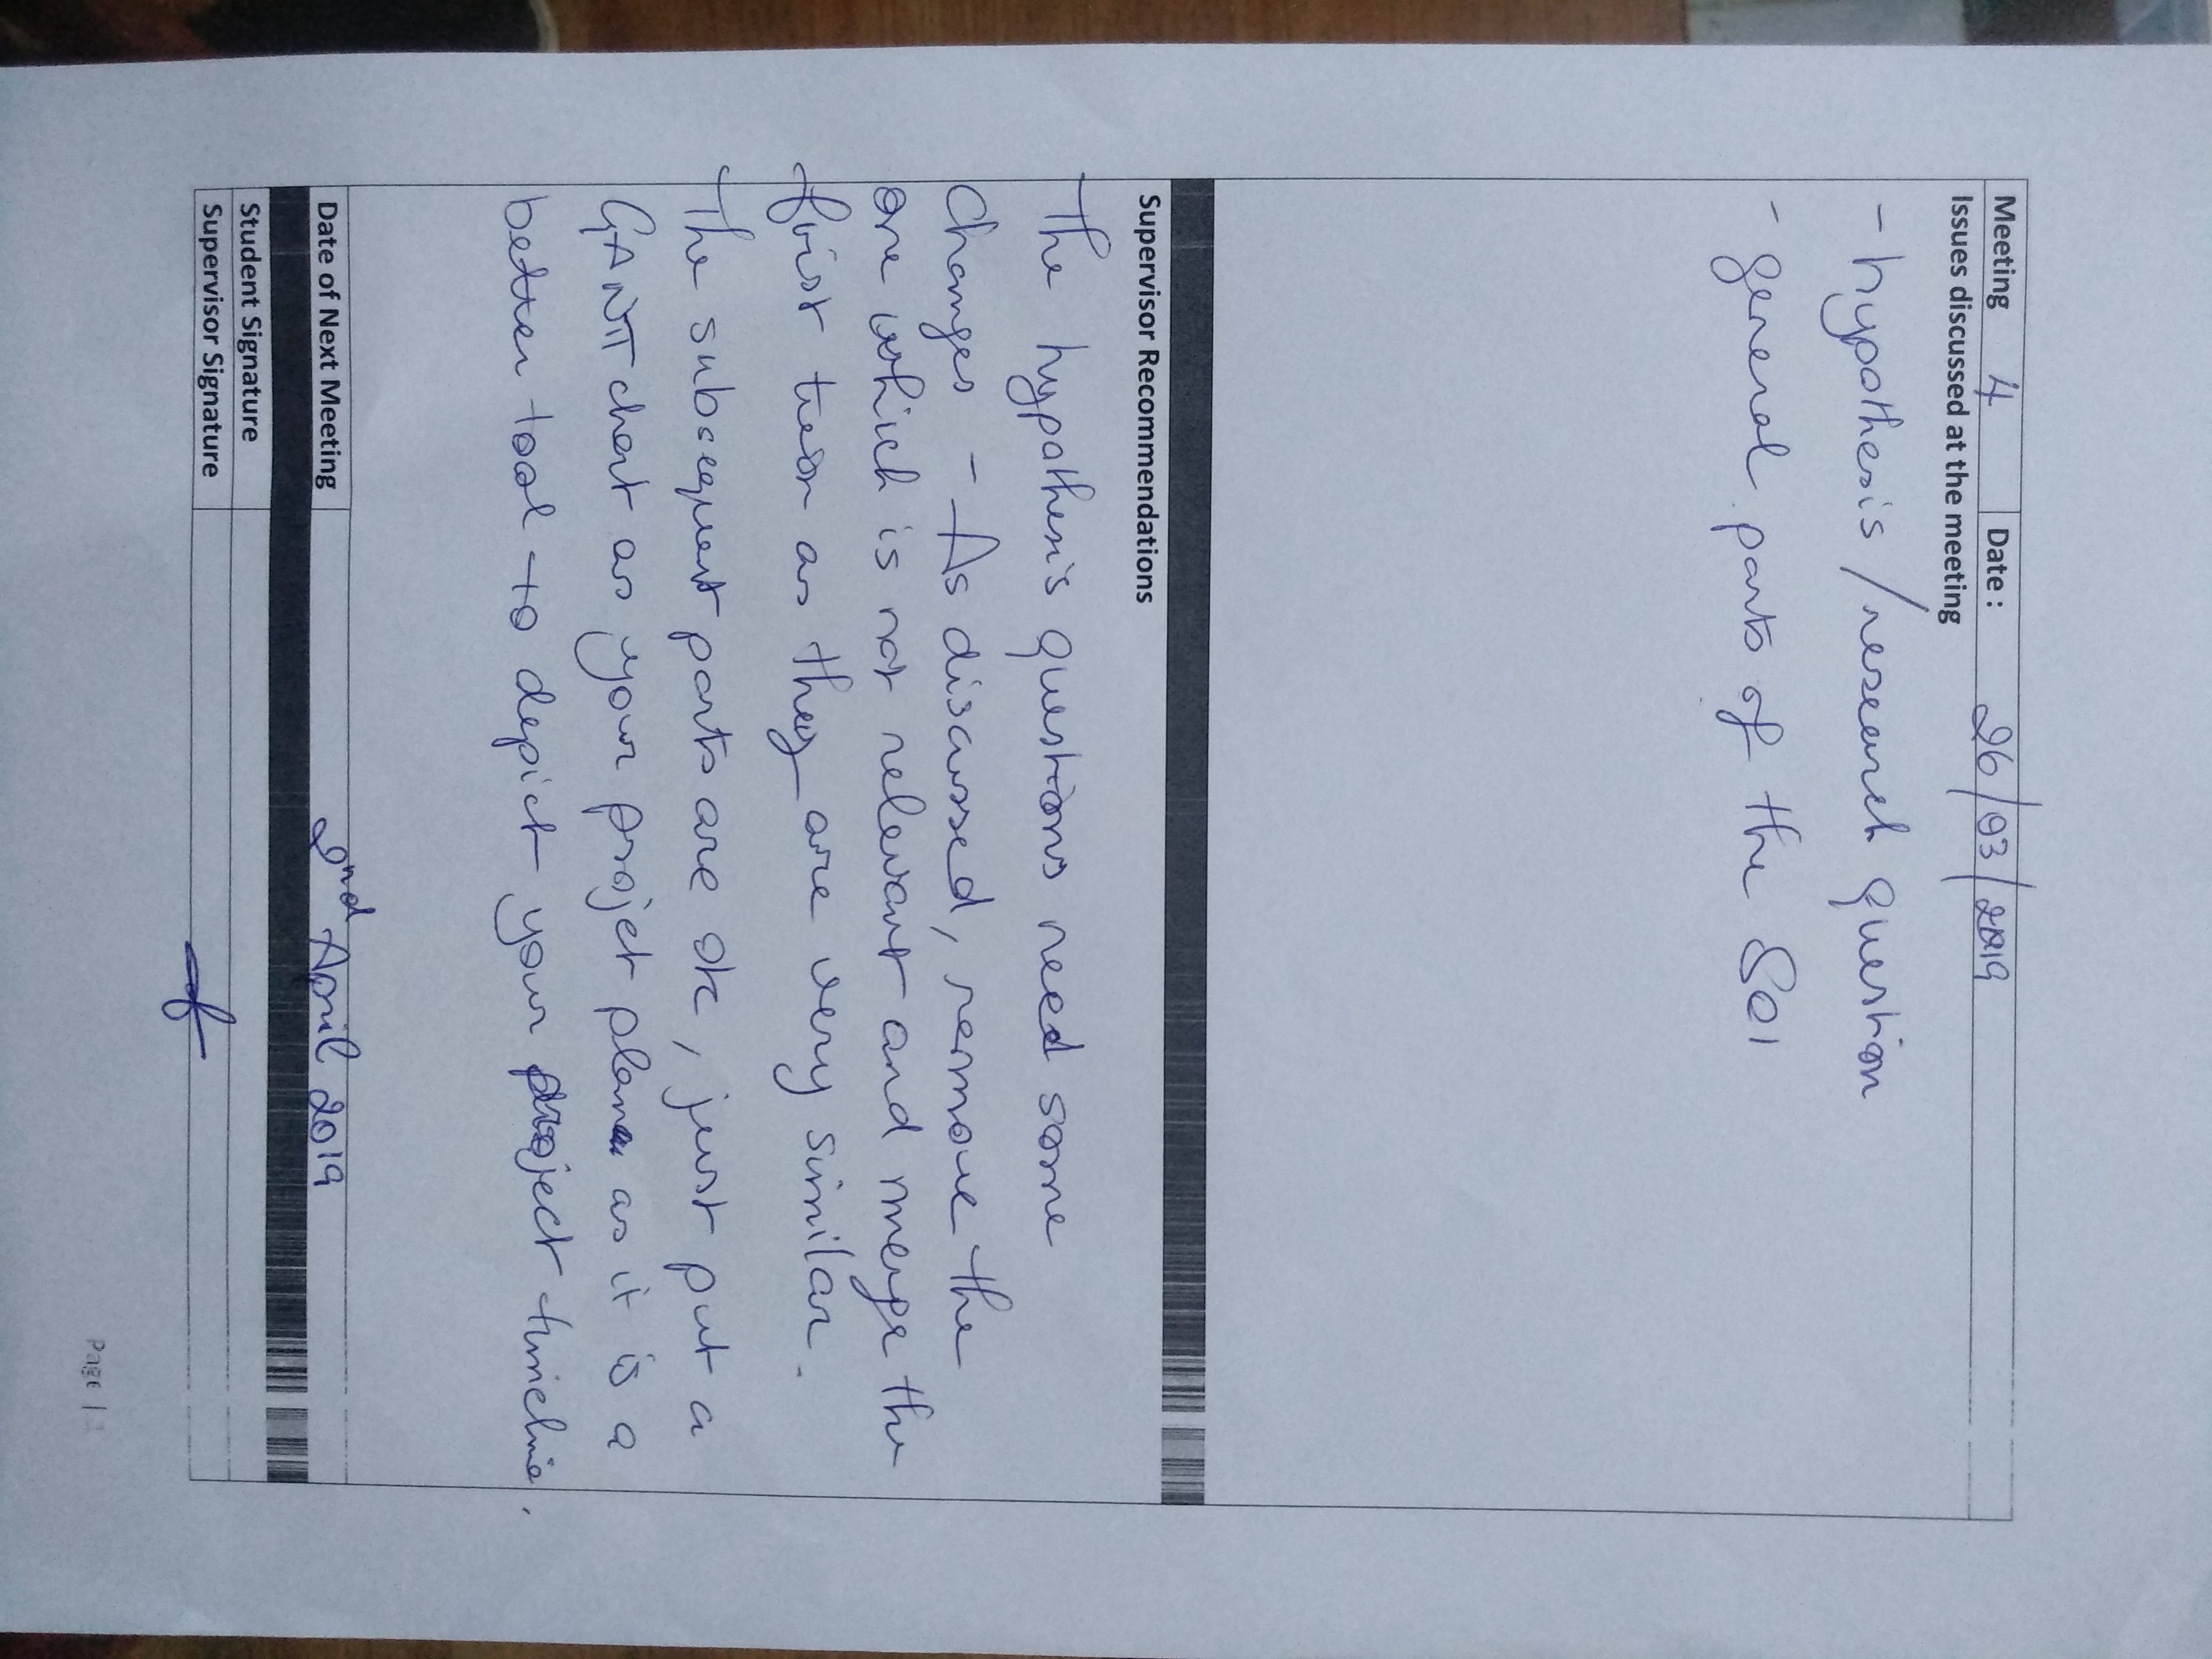 Meeting 4 Date : 26/03/2019
Issues discussed at the meeting
- hypothesis / research question
- general parts of the
Supervisor Recommendations
The hypothesis questions need some
changes - As discussed, remove the
one which is not relevant and merge the
first two as they are very similar.
The subsequent parts are ok, just put a
GANTT chart as your projet plan as it is a
better tool to depict your project timeline.
Date of Next Meeting 2nd April 2019
Student Signature
Supervisor Signature
Page | 1